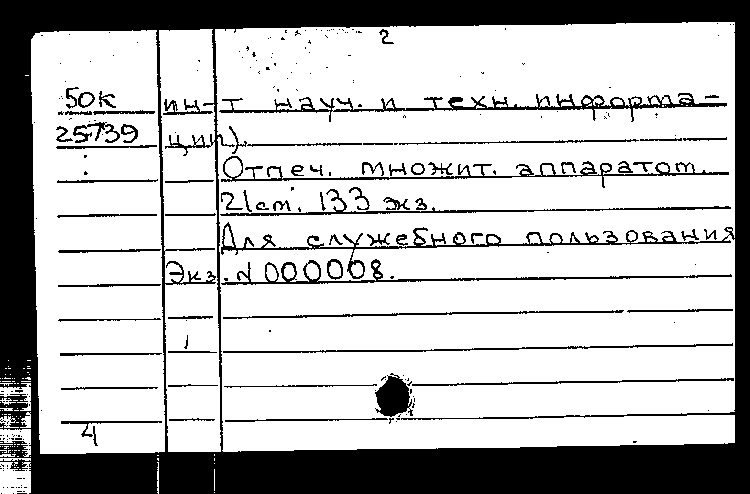 2
50к ин-т науч. и техн. информа-
25739 ции).
: Отпеч. множит. аппаратом.
21см. 133 экз.
Для служебного пользования
Экз. N 000008.
4